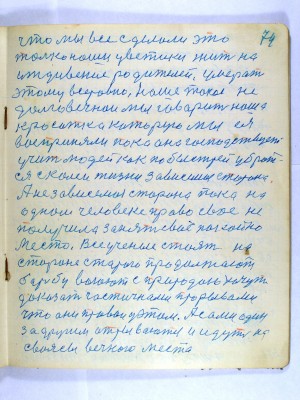 74
что мы все сделали это
только наши цветики жит на
иждивение родителей, умерат
этому веровно, наше такое не
долговечное мы говорит наша
которую мы ей
восприняли пока она господствует
учит людей как побыстрей убрат
ся с коли жизни зависимая сторона.
А независимая сторона пока на
одном человеке право свое не
получила занять свое
место. Все ученые стоят на
стороне старого продолжают
борьбу воюют с природою хочут
доказать частичками прорывами
что они правы у этом. А сами один
за другим отрываются и идут на
свояси вечного места